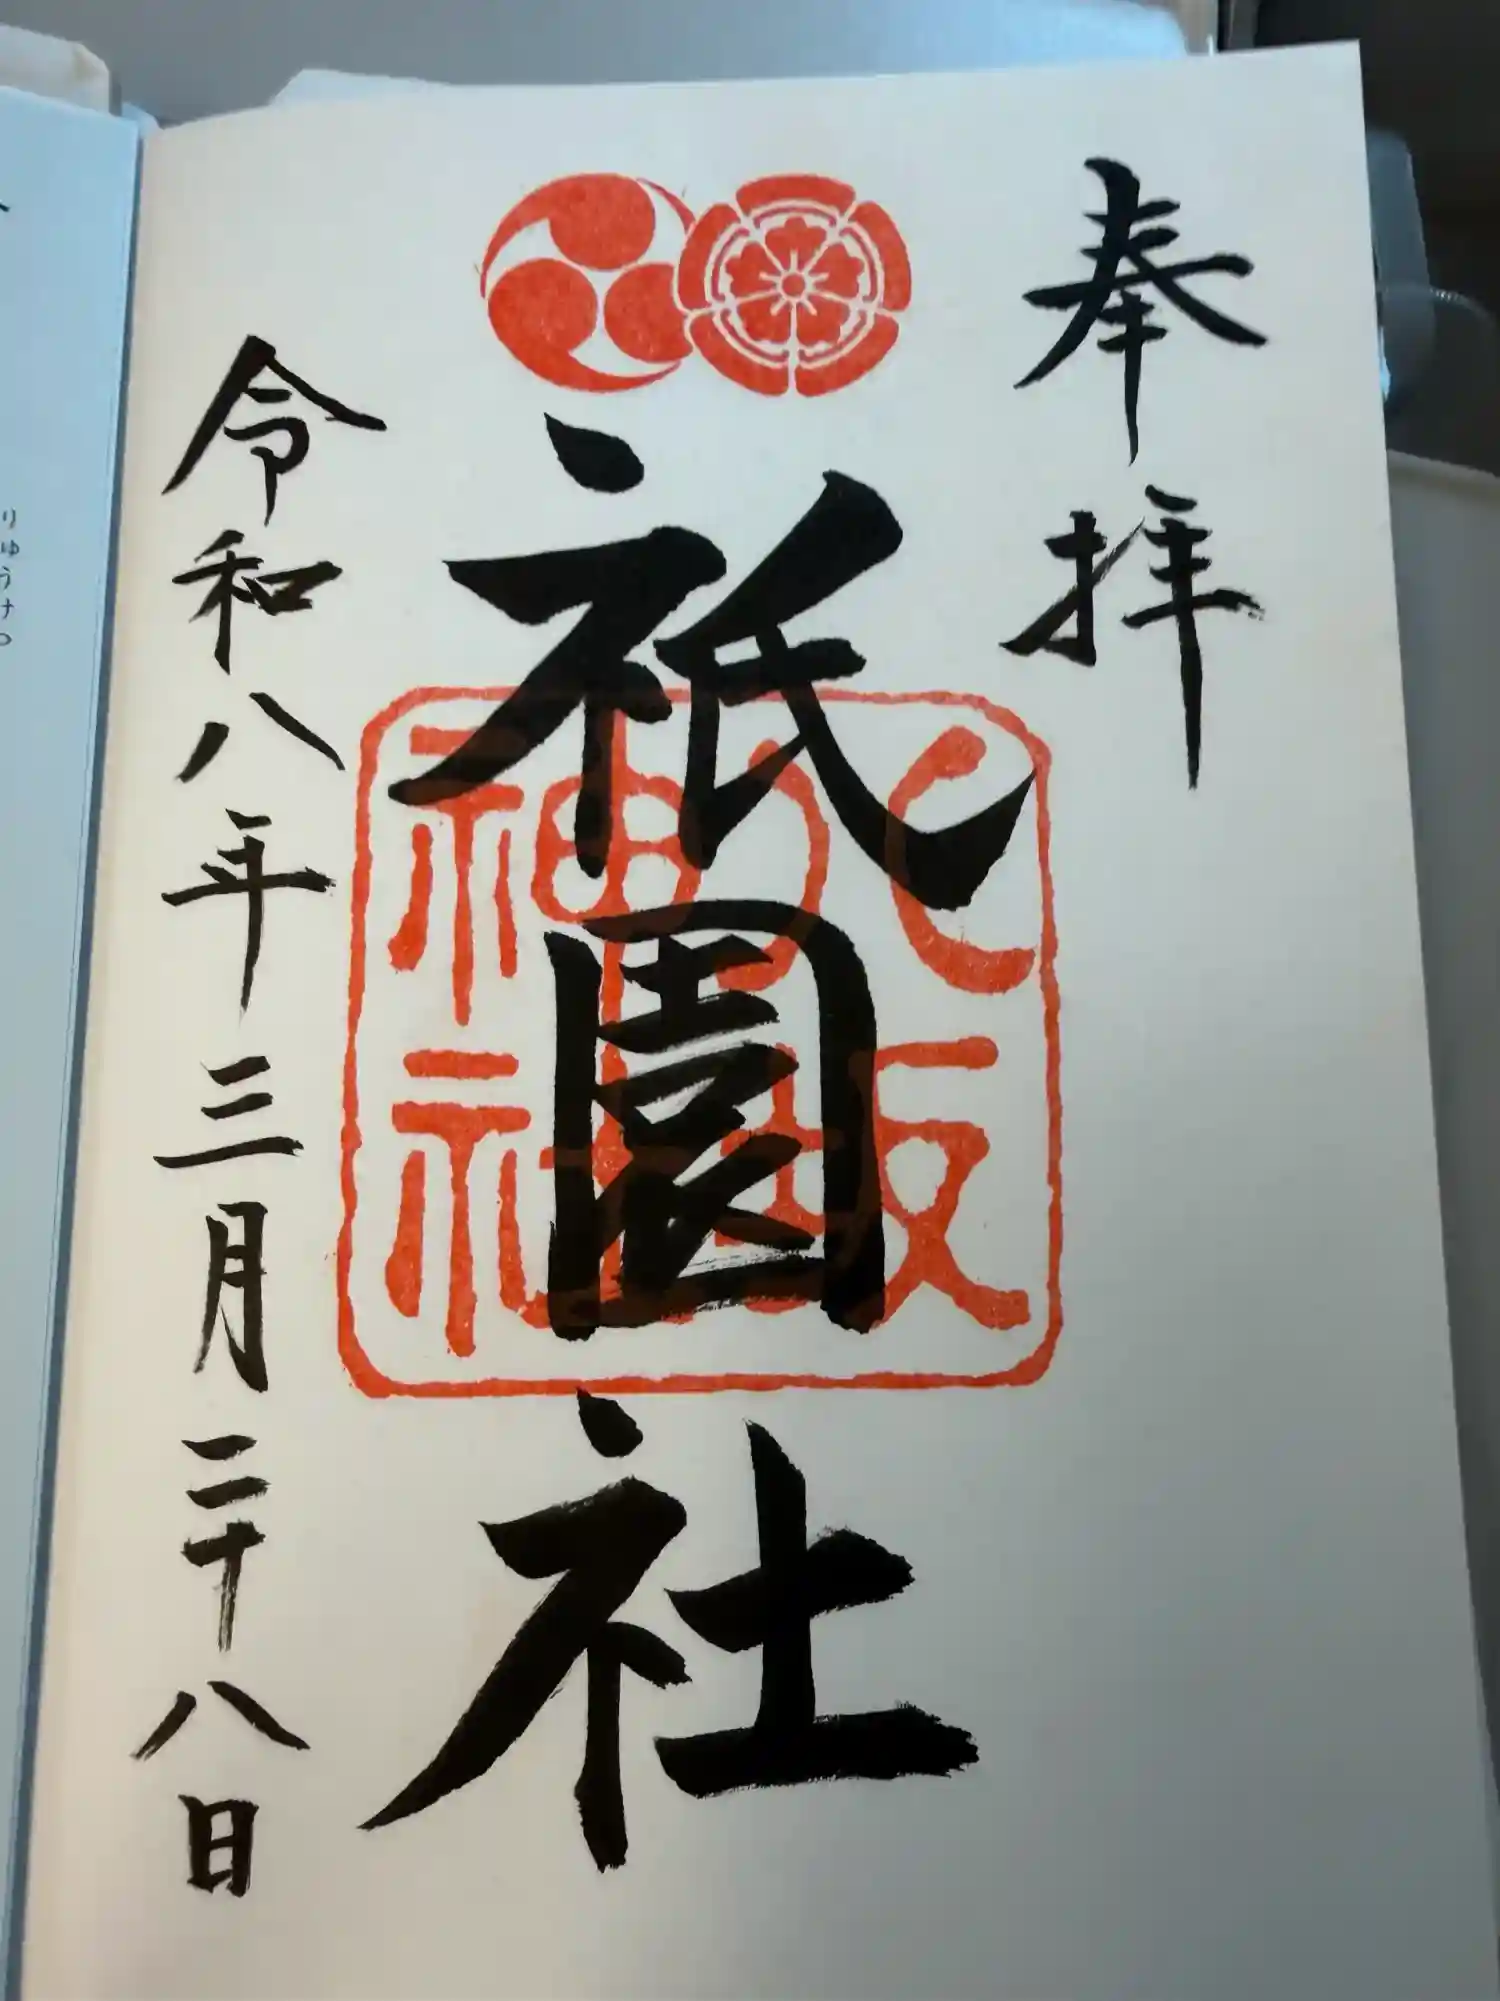 奉拝
八坂神社
祇園社
令和八年三月二十八日
りゅうけ